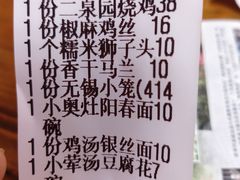 1份二泉园烧鸡38
1份椒麻鸡丝 16
1个糯米狮子头10
1份香干马兰 10
1份无锡小笼(414
1小奥灶阳春面10
碗
1份鸡汤银丝面10
1小荤汤豆腐花7
碗